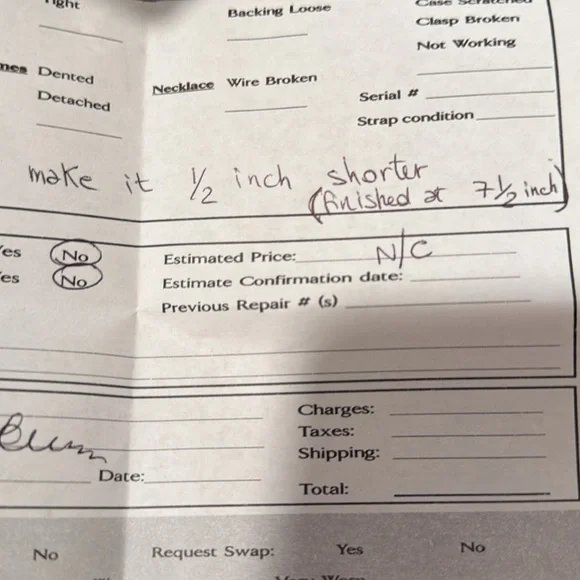 Backing Loose
Clasp Broken
Not Working
Dented
Detached
Necklace Wire Broken
Serial #
Strap condition
make it 1/2 inch shorter
(finished at 7 1/2 inch)
No
No
Estimated Price: N/C
Estimate Confirmation date:
Previous Repair # (s)
Charges:
Taxes:
Shipping:
Date:
Total:
No Request Swap: Yes No